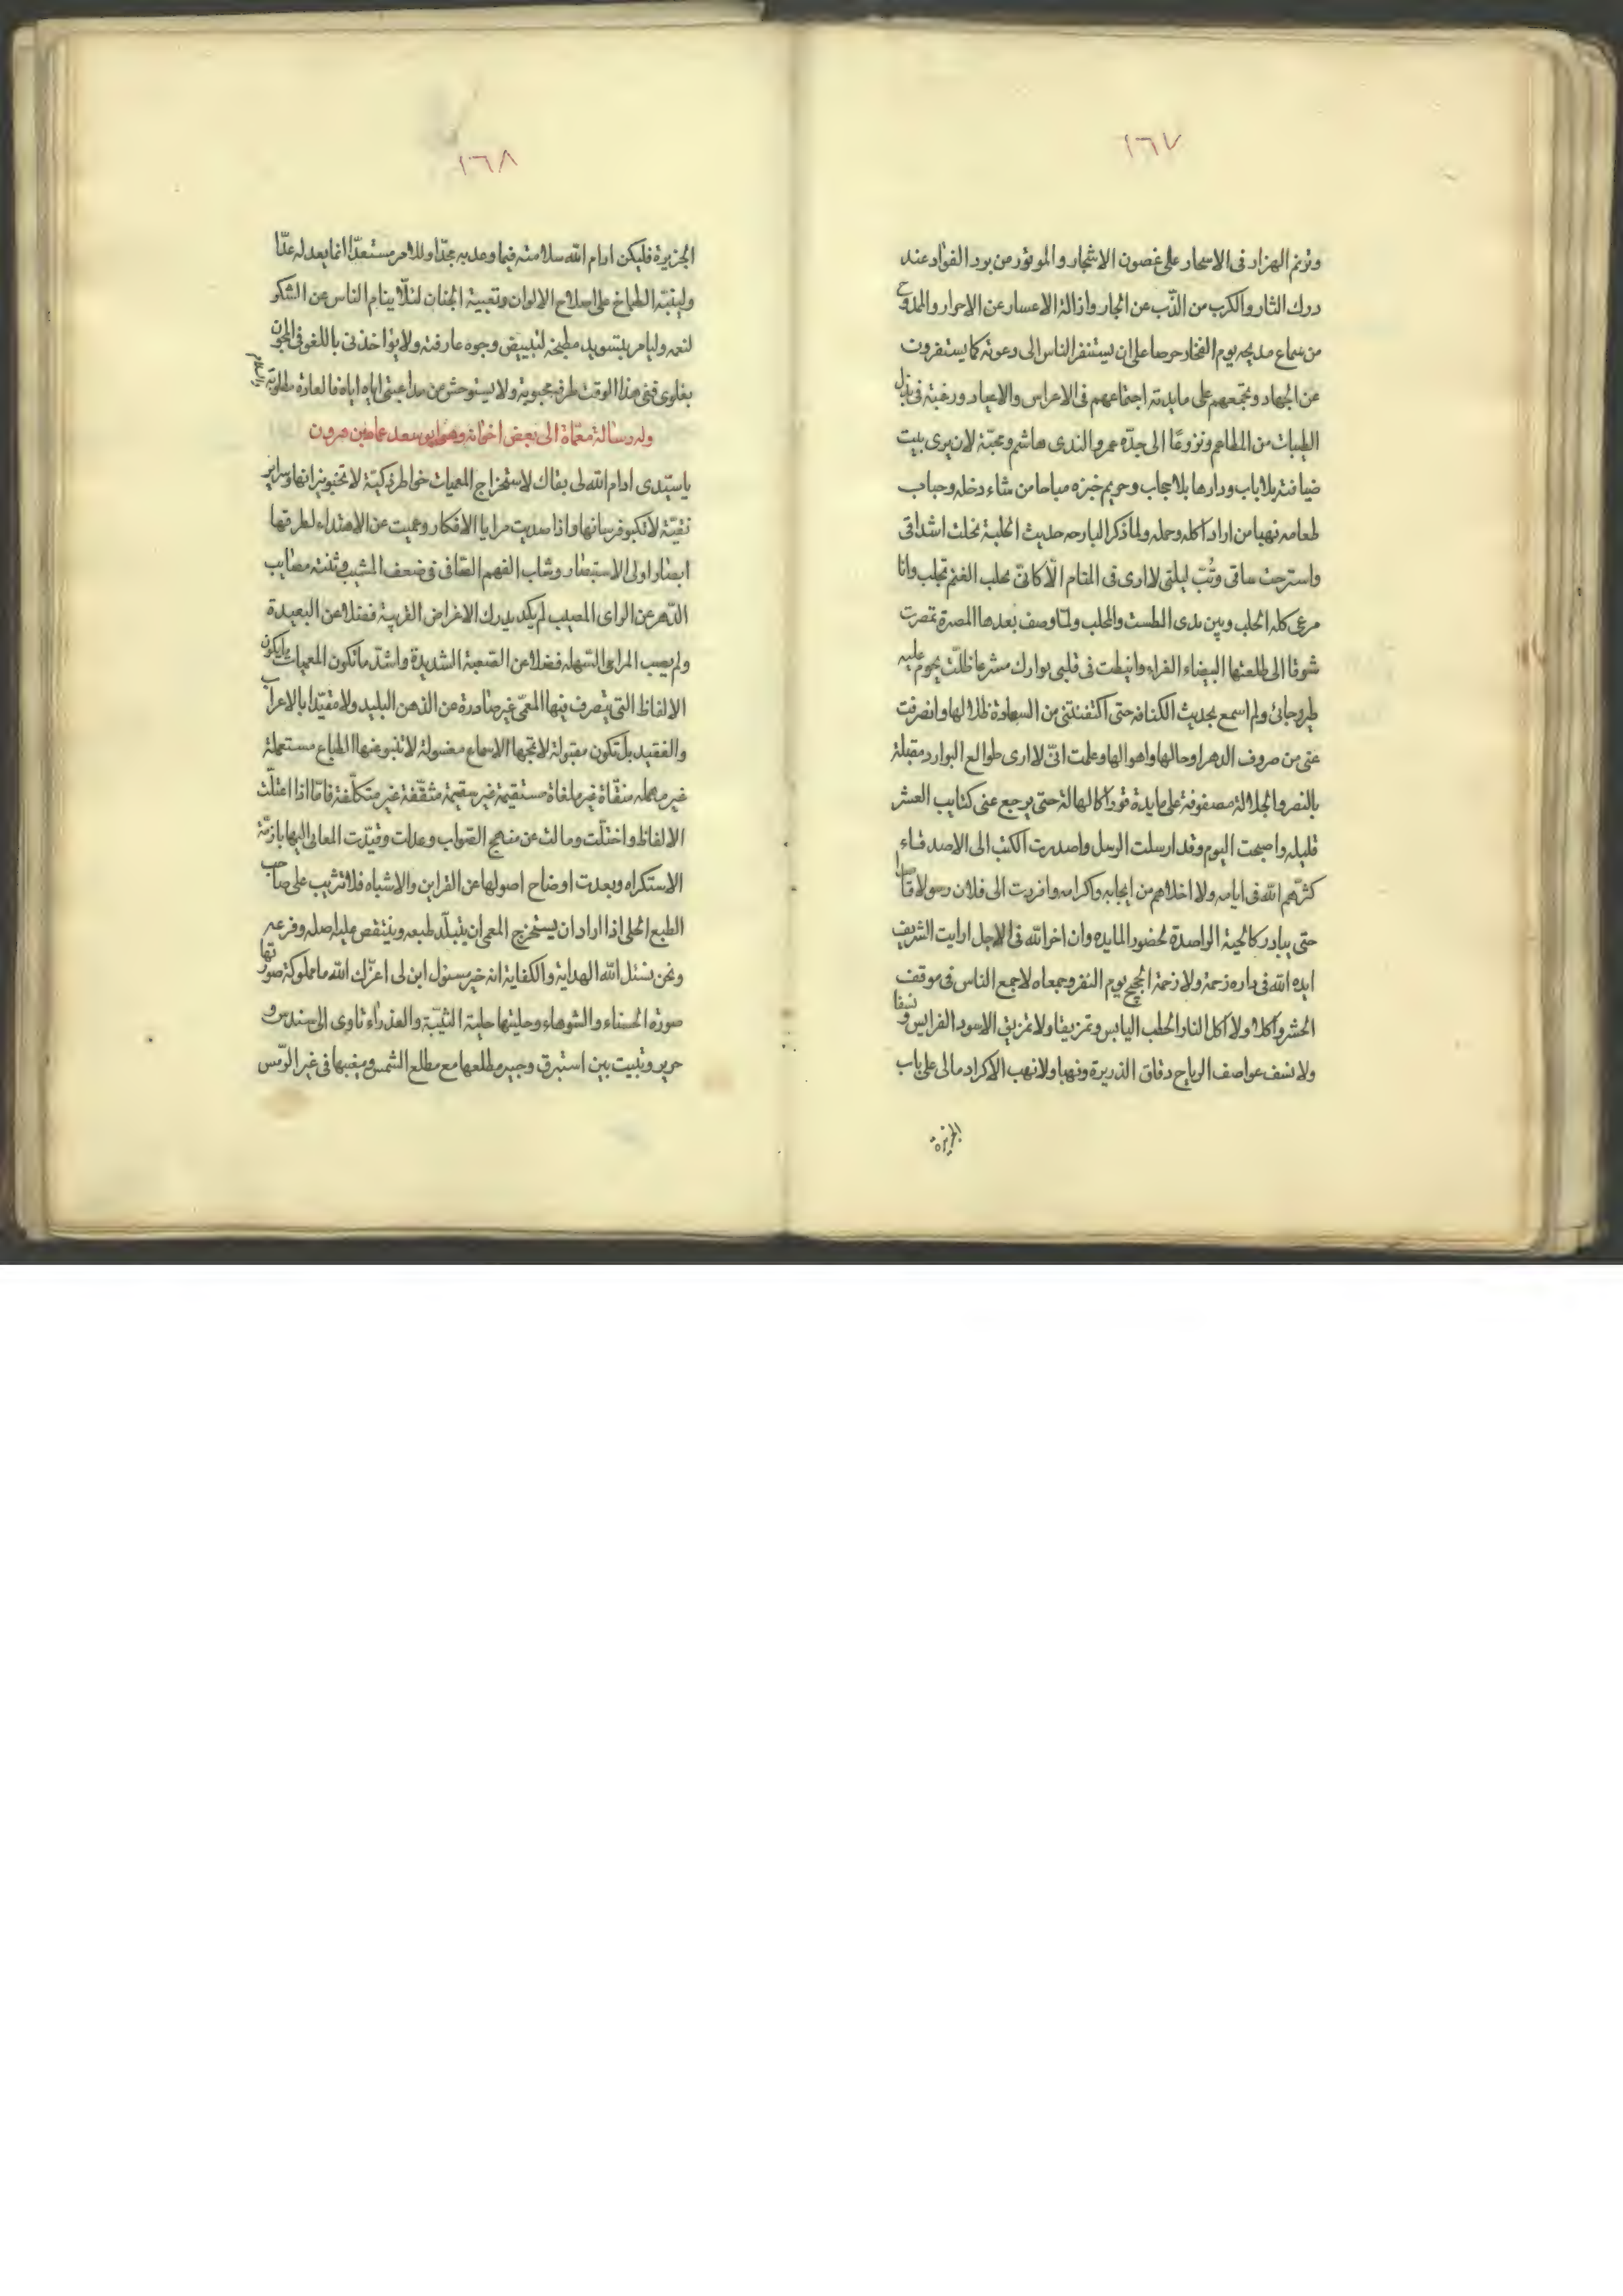 ١٦٧
وترنم الهزار فى الاسحار على غصون الاشجار والموتور من برد الفواد عند
درك الثار والكرب من الذّب عن الجار وازالة الاعسار عن الاحرار والمدوح
من سماع مديحه يوم الفخار حرصا على ان يستنفر الناس الى دعوته كما يستفزون
عن الجهاد وتجمعهم على مايدته اجتماعهم فى الاعراس والاعياد ورغبة فى بذل
الطيبات من المطاعم ونزوعًا الى جدّه عمرو الندى هاشم ومحبّة لان يرى بيت
ضيافته بلا باب ودارها بلا حجاب وحريم خبزه مباحا من شاء دخله وحباب
طعامه نهبا من اراد اكله وحمله ولما ذكر البارحه حديث الحلبة تخلت اشداقى
واسترحت ساقى وبُتّ ليلتى لا ارى فى المنام الّا كانّى بحلب الغنم تحلب وانا
مرعى كله الحلب وبين يدى الطست والمحلب ولمّا وصف بعدها المصرة تمصرت
شوقا الى طلعتها البيضاء الغراء وانبطت فى قلبى بوارك مشرعا ظلّت يحوم عليه
طير وجانى ولم اسمع بحديث الكنافه حتى اكتفتنى من السعادة ظلالها وانصرفت
عنى من صروف الدهر اوحالها واهوالها وعلمت انّى لا ارى طوالع البوارد مقبلة
بالنصر والجلالة مصفوفة على مايدة قوراكالهالة حتى يرجع عنى كتايب العسر
قليله واصبحت اليوم وقد ارسلت الرسل واصدرت الكتب الى الاصدقاء
كثرّهم الله فى ايامه ولا اخلاهم من ايجابه واكرامه وافردت الى فلان رسولا قاصدا
حتى يبادر كالحية الواصدة لحضور المايده وان اخر الله فى الاجل ارايت الشريف
ايده الله فى داره زحمة ولا زحمة الحجيج يوم النفر وجمعاه لا جمع الناس فى موقف
الحشر واكلا ولا اكل النار الحطب اليابس وتمزيقا ولا تمزيق الاسود الفرايس ونسفا
ولا نسف عواصف الرياح دقاق الذريرة ونهبا ولا نهب الاكراد مالى على باب
الجزيره
١٦٨
الجزيرة فليكن ادام الله سلامته فيما وعد به مجدّا وللامر مستعدّا انما يعد له عدّا
ولينبّه الطباخ على اصلاح الالوان وتعبية الجفان لئلّا ينام الناس عن الشكر
لنعمه وليامر بتسويد مطبخه لتبييض وجوه عارفته ولا يؤاخذنى باللغو فى المجون
بغلوى فى هذا الوقت طرفه محبوبة ولا يستوحش من مداعبتى اياه اياه فالعادة مطلوبة والسلام
وله رسالة معمّاة الى بعض اخوانه وهو ابو سعد عامر بن هرون
يا سيّدى ادام الله لى بقاك لاستخراج المعميات خواطر ذكيّة لا تخبو نيرانها وسراير
نقيّة لا تكبو فرسانها واذا صديت مرايا الافكار وعميت عن الاهتداء لطرقها
ابصار اولى الاستبصار وشاب الفهم الثاقى فى ضعف المشيب وثنته مصايب
الدهر عن الراى المصيب لم يكد يدرك الاغراض القريبة فضلا عن البعيدة
ولم يصب المراعى السهله فضلا عن الصعبة الشديدة واشدّ ما تكون المعميات ما يكون
الالفاظ التى يتصرف فيها المعمّى غير صادرة عن الذهن البليد ولا مقيّدا بالاعراب
والفقيد بل تكون مقبولة لا تمجها الاسماع مغسولة لا تنبو عنها الطباع مستعملة
غير مهمله منقّاة غير ملغاة مستقيمة غير سقيمة مثقّفة غير متكلّفة فامّا اذا اعتلّت
الالفاظ واختلّت ومالت عن منهج الصّواب وعدلت وقيّدت المعانى اليها بازمّة
الاستكراه وبعدت اوضاح اصولها عن القراين والاشباه فلا تثريب على صاحب
الطبع الحلى اذا اراد ان يستخرج المعمى ان يتبلّد طبعه وينتقص عليه اصله وفرعه
ونحن نسئل الله الهداية والكفاية انه خير مسئول ابن لى اعزّك الله ما مملوكة صورتها
صورة الحسناء والشوهاء وحليتها حلية الثيّبة والعذراء تاوى الى سندس و
حرير وتبيت بين استبرق وحبير مطلعها مع مطلع الشمس ومغيبها فى غير الرّمس